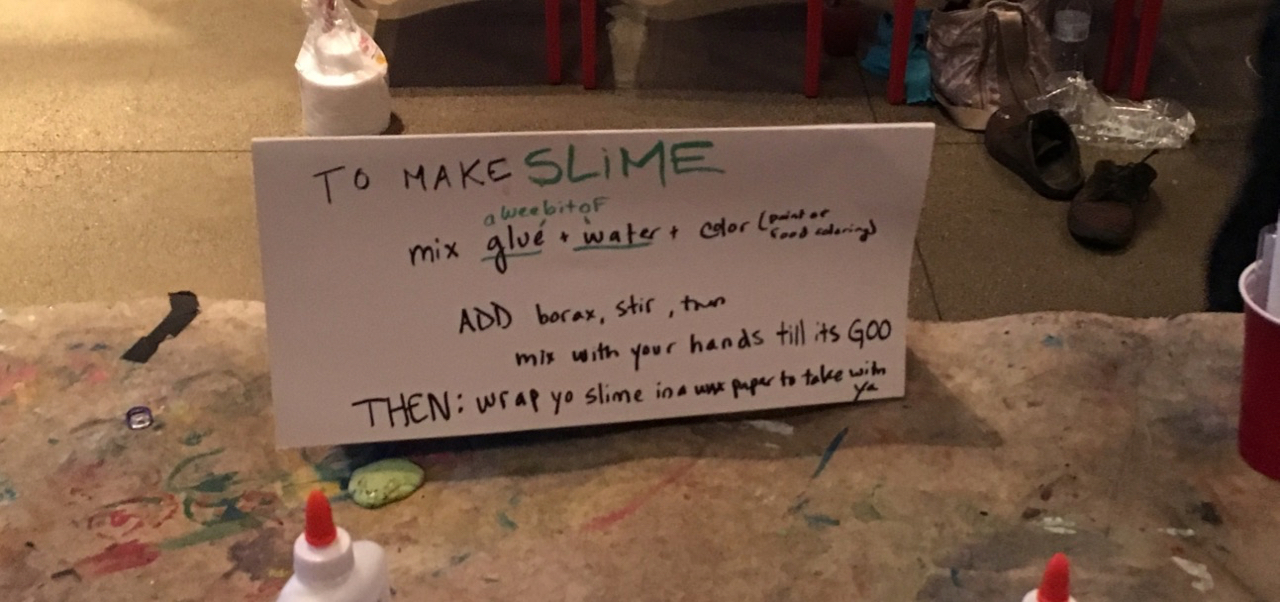 TO MAKE SLiME
a wee bit oF
mix glue + water + color (paint or
food coloring)
ADD borax, stir, then
mix with your hands till its GOO
THEN: wrap yo slime in a wax paper to take with
ya